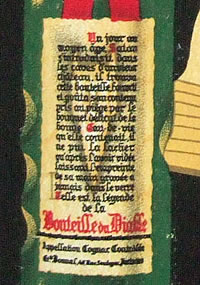 Un jour au
moyen âge Satan
s'introduisit dans
les caves d'un vieux
château, il trouva
cette bouteille fumeé
et goûta son contenu
pris au piège par le
bouquet délicat de la
bonne Eau-de-vie
qu'elle contenait, il
ne put la lacher
qu'après l'avoir vidée
laissant l'empreinte
de sa main gravée a
jamais dans le verre
Telle est la légende
de la
Bouteille du Diable
Appellation Cognac Contrôlée